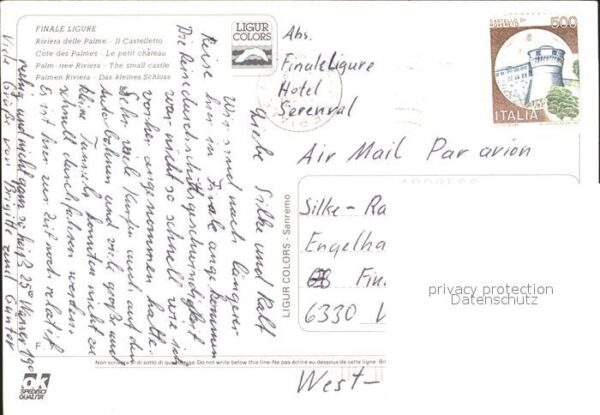 FINALE LIGURE
Riviera delle Palme - Il Castelletto
Côte des Palmes - Le petit château
Palm-tree Riviera - The small castle
Palmen Riviera - Das kleines Schloss
LIGUR
COLORS
Abs.
Finaleligure
Hotel
Serenval
CASTELLO DI
ROVERETO
500
ITALIA
Air Mail Par avion
Liebe Silke und Ralf
Wir sind nach längerer
Reise hier in Finale angekommen
Die Reisedurchschnittsgeschwindigkeit
war nicht so schnell wie ich
vorher angenommen hatte.
Sehr viel Kurven auch auf den
Autobahnen und viel große und
kleine Tunnels konnten nicht zu
schnell durchfahren werden.
Es ist hier zur Zeit noch relativ
ruhig und nicht ganz so heiß 25° Wasser 19°
Viele Grüße von Brigitte und Günter
LIGUR COLORS - Sanremo
ADDRESS
Silke-Ra
Engelha
68 Fin
6330 W
West-
privacy protection
Datenschutz
F.
Non scrivere al di sotto di questa linea - Do not write below this line - Ne pas écrire au dessous de cette ligne
ok
SPEDISCI
QUALITÀ